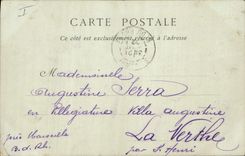 I
CARTE POSTALE
Ce côté est exclusivement réservé à l'adresse
Mademoiselle
Augustine Serra
en Villégiature Villa Augustine
près Marseille La Nerthe
B.d.Rh. par St Henri